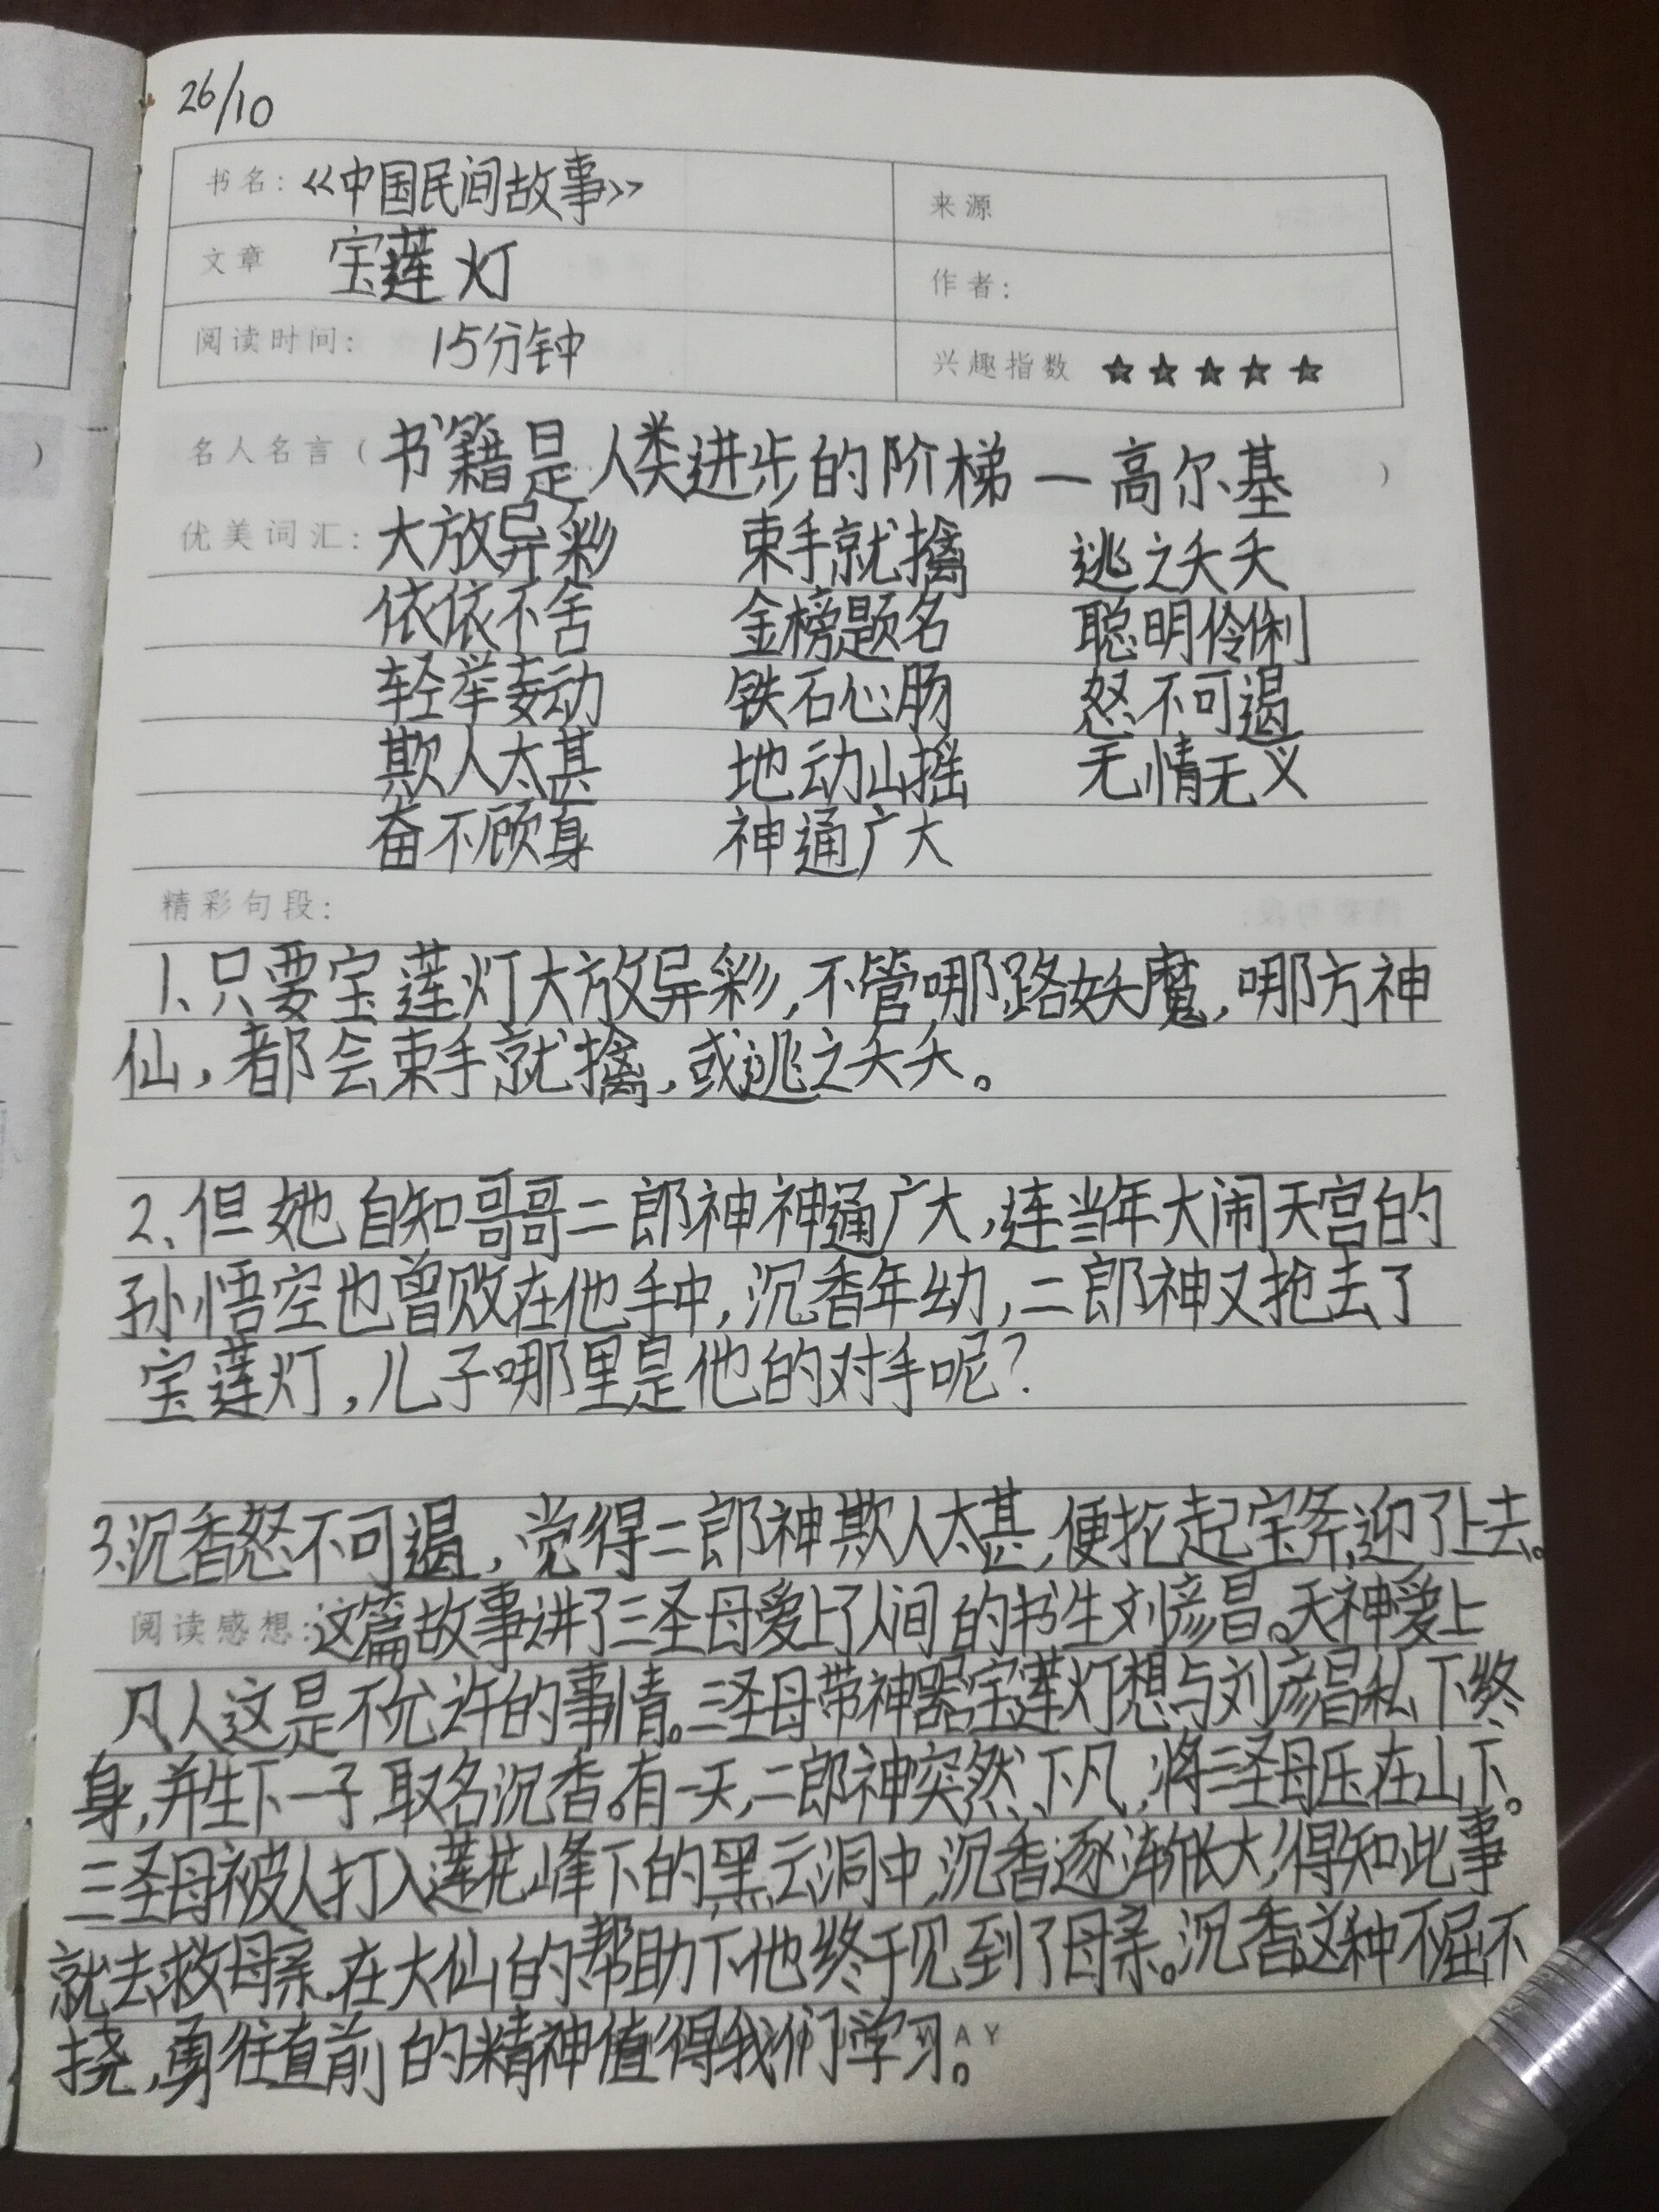 26/10
书名：《中国民间故事》 来源
文章 宝莲灯 作者：
阅读时间： 15分钟 兴趣指数 ★★★★★
名人名言（书籍是人类进步的阶梯—高尔基）
优美词汇：大放异彩 束手就擒 逃之夭夭
依依不舍 金榜题名 聪明伶俐
轻举妄动 铁石心肠 怒不可遏
欺人太甚 地动山摇 无情无义
奋不顾身 神通广大
精彩句段：
1、只要宝莲灯大放异彩，不管哪路妖魔，哪方神
仙，都会束手就擒，或逃之夭夭。
2、但她自知哥哥二郎神神通广大，连当年大闹天宫的
孙悟空也曾败在他手中，沉香年幼，二郎神又抢去了
宝莲灯，儿子哪里是他的对手呢？
3、沉香怒不可遏，觉得二郎神欺人太甚，便抡起宝斧，迎了上去。
阅读感想：这篇故事讲了三圣母爱上了人间的书生刘彦昌。天神爱上
凡人这是不允许的事情。三圣母带神器宝莲灯想与刘彦昌私下终
身，并生下一子，取名沉香。有一天，二郎神突然下凡，将三圣母压在山下。
三圣母被人打入莲花峰下的黑云洞中，沉香逐渐长大，得知此事
就去救母亲，在大仙的帮助下他终于见到了母亲。沉香这种不屈不
挠，勇往直前的精神值得我们学习。WAY